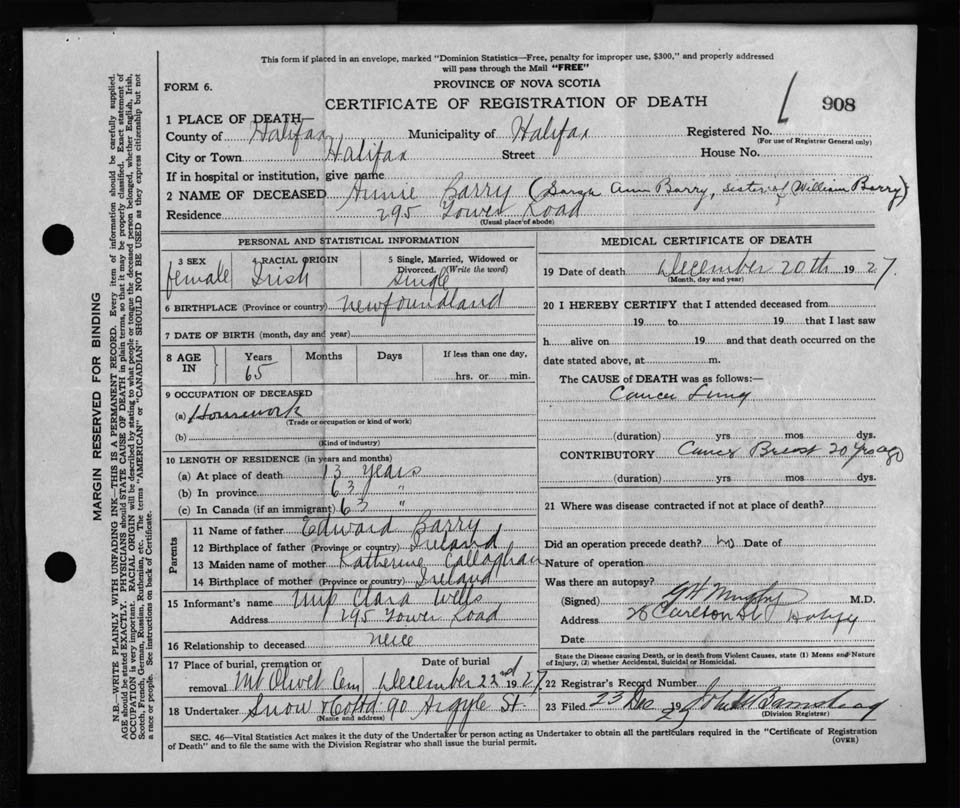 This form if placed in an envelope, marked "Dominion Statistics—Free, penalty for improper use, $300," and properly addressed
will pass through the Mail "FREE"
FORM 6.
PROVINCE OF NOVA SCOTIA
CERTIFICATE OF REGISTRATION OF DEATH
908
1 PLACE OF DEATH—
County of Halifax, Municipality of Halifax Registered No.
(For use of Registrar General only)
City or Town Halifax Street House No.
If in hospital or institution, give name
2 NAME OF DECEASED Annie Barry ( Ann Barry, sister of William Barry)
Residence 295 Tower Road
(Usual place of abode)
PERSONAL AND STATISTICAL INFORMATION
3 SEX female
4 RACIAL ORIGIN Irish
5 Single, Married, Widowed or
Divorced. (Write the word)
Single
6 BIRTHPLACE (Province or country) Newfoundland
7 DATE OF BIRTH (month, day and year)
8 AGE IN Years 65 Months Days If less than one day,
hrs. or min.
9 OCCUPATION OF DECEASED
(a) Housework
(Trade or occupation or kind of work)
(b)
(Kind of industry)
10 LENGTH OF RESIDENCE (in years and months)
(a) At place of death 13 years
(b) In province 63 "
(c) In Canada (if an immigrant) 63 "
Parents
11 Name of father Edward Barry
12 Birthplace of father (Province or country) Ireland
13 Maiden name of mother Katherine Callaghan
14 Birthplace of mother (Province or country) Ireland
15 Informant's name Clara Wells
Address 295 Tower Road
16 Relationship to deceased neice
17 Place of burial, cremation or
removal Mt Olivet Cem
Date of burial
December 22nd 1927.
18 Undertaker Snow & Co Ltd 90 Argyle St.
(Name and address)
MEDICAL CERTIFICATE OF DEATH
19 Date of death December 20th 1927.
(Month, day and year)
20 I HEREBY CERTIFY that I attended deceased from
19 to 19 that I last saw
h alive on 19 and that death occurred on the
date stated above, at m.
The CAUSE of DEATH was as follows:—
Cancer Lung
(duration) yrs mos dys.
CONTRIBUTORY Cancer Breast 20 yrs ago
(duration) yrs mos dys.
21 Where was disease contracted if not at place of death?
Did an operation precede death? Date of
Nature of operation
Was there an autopsy?
(Signed) Murphy M.D.
Address 26 Carleton St Halifax
Date
State the Disease causing Death, or in death from Violent Causes, state (1) Means and Nature
of Injury, (2) whether Accidental, Suicidal or Homicidal.
22 Registrar's Record Number
23 Filed 23 Dec 192
(Division Registrar)
SEC. 46—Vital Statistics Act makes it the duty of the Undertaker or person acting as Undertaker to obtain all the particulars required in the "Certificate of Registration
of Death" and to file the same with the Division Registrar who shall issue the burial permit.
(OVER)
MARGIN RESERVED FOR BINDING
N.B.—WRITE PLAINLY WITH UNFADING INK—THIS IS A PERMANENT RECORD. Every item of information should be carefully supplied.
AGE should be stated EXACTLY. PHYSICIANS should STATE CAUSE OF DEATH in plain terms, so that it may be properly classified. Exact statement of
OCCUPATION is very important. RACIAL ORIGIN will be described by stating to what people or tongue the deceased person belonged, whether English, Irish,
Scotch, French, German, Russian, Ruthenian, etc. The terms "AMERICAN" or "CANADIAN" SHOULD NOT BE USED as they express citizenship but not
a race or people. See instructions on back of Certificate.